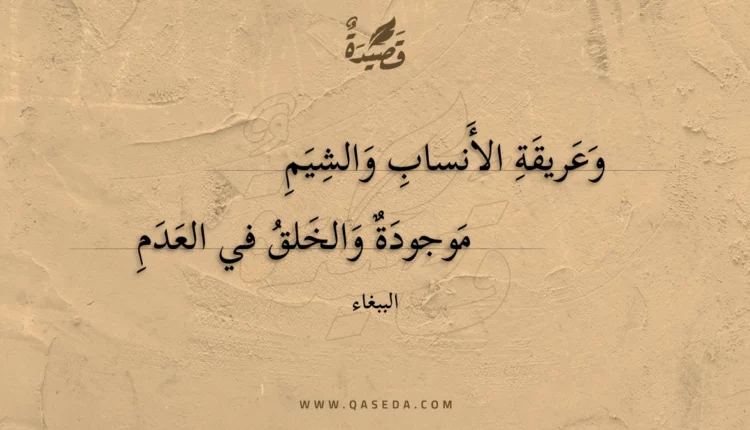 قَصِيدَةٌ
وَعَريقَةِ الأَنسابِ وَالشِيَمِ
مَوجودَةٌ وَالخَلقُ في العَدَمِ
الببغاء
WWW.QASEDA.COM